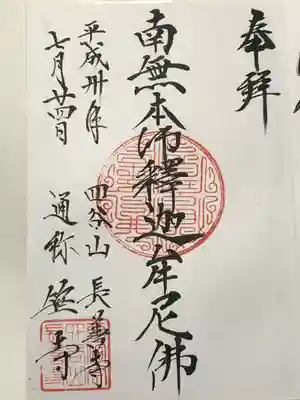 奉拝
南無本師釋迦牟尼佛
四谷山 長善寺
通称 笹寺
平成卅年
七月廿四日